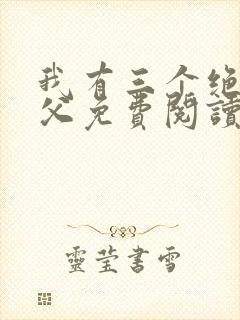 我有三个绝
父免费阅读
灵莹书雪